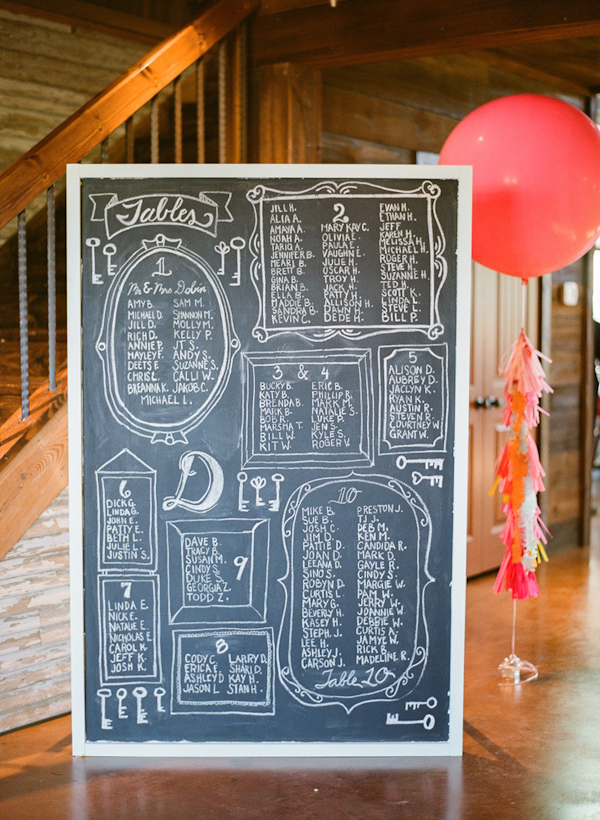 Tables
1
Mr & Mrs Dobin
AMY B. SAM M.
MICHAEL D. SHANNON M.
JILL D. MOLLY M.
RICH D. KELLY P.
ANNIE P. J.T. S.
HAYLEY F. ANDY S.
DEETS E. SUZANNE S.
CHRIS L. CALLI W.
BREANNA K. JAKOB C.
MICHAEL L.
2
JILL H.
ALIA A.
AMAYA A.
NOAH A.
TARIQ A.
JENNIFER B.
MEARI B.
BRETT B.
GINA B.
BRIAN B.
ELLA B.
MADDIE B.
SANDRA B.
KEVIN C.
MARY KAY C.
OLIVIA E.
PAULA E.
VAUGHN E.
JULIE H.
OSCAR H.
TROY H.
JACK H.
PATTY H.
ALLISON H.
DAWN H.
DEDE H.
EVAN H.
ETHAN H.
JEFF
KAREN H.
MELISSA H.
MICHAEL H.
ROGER H.
STEVE H.
SUZANNE H.
TED H.
SCOTT K.
LINDA L.
STEVE L.
BILL P.
3 & 4
BUCKY B. ERIC B.
KATY B. PHILLIP R.
BRENDA B. MARK M.
MARK B. NATALIE S.
BOB R. LUKE P.
MARSHA T. JEN S.
BILL W. KYLE S.
KIT W. ROGER V.
5
ALISON D.
AUBREY D.
JACLYN K.
RYAN K.
AUSTIN R.
STEVEN R.
COURTNEY W.
GRANT W.
6
DICK G.
LINDA G.
JOHN E.
PATTY E.
BETH L.
JULIE L.
JUSTIN S.
D
7
LINDA E.
NICK E.
NATALIE E.
NICHOLAS E.
CAROL K.
JEFF K.
JOSH K.
9
DAVE B.
TRACY B.
SUSAN M.
CINDY S.
DUKE S.
GEORGIA Z.
TODD Z.
8
CODY C. LARRY D.
ERICA E. SHARI D.
ASHLEY D. KAY H.
JASON L. STAN H.
10
MIKE B. PRESTON J.
SUE B. TJ J.
JOSH C. DEB M.
JIM D. KEN M.
PATTIE D. CANDIDA R.
JOAN D. MARK D.
LEEANA D. GAYLE R.
SINO S. CINDY S.
ROBYN D. MARGIE W.
CURTIS L. PAM W.
MARY G. JERRY W.
BEVERLY H. JOANNIE W.
KASEY H. DEBBIE W.
STEPH. J. CURTIS A.
LEE H. JAMYE W.
ASHLEY J. RICK B.
CARSON J. MADELINE R.
Table 10